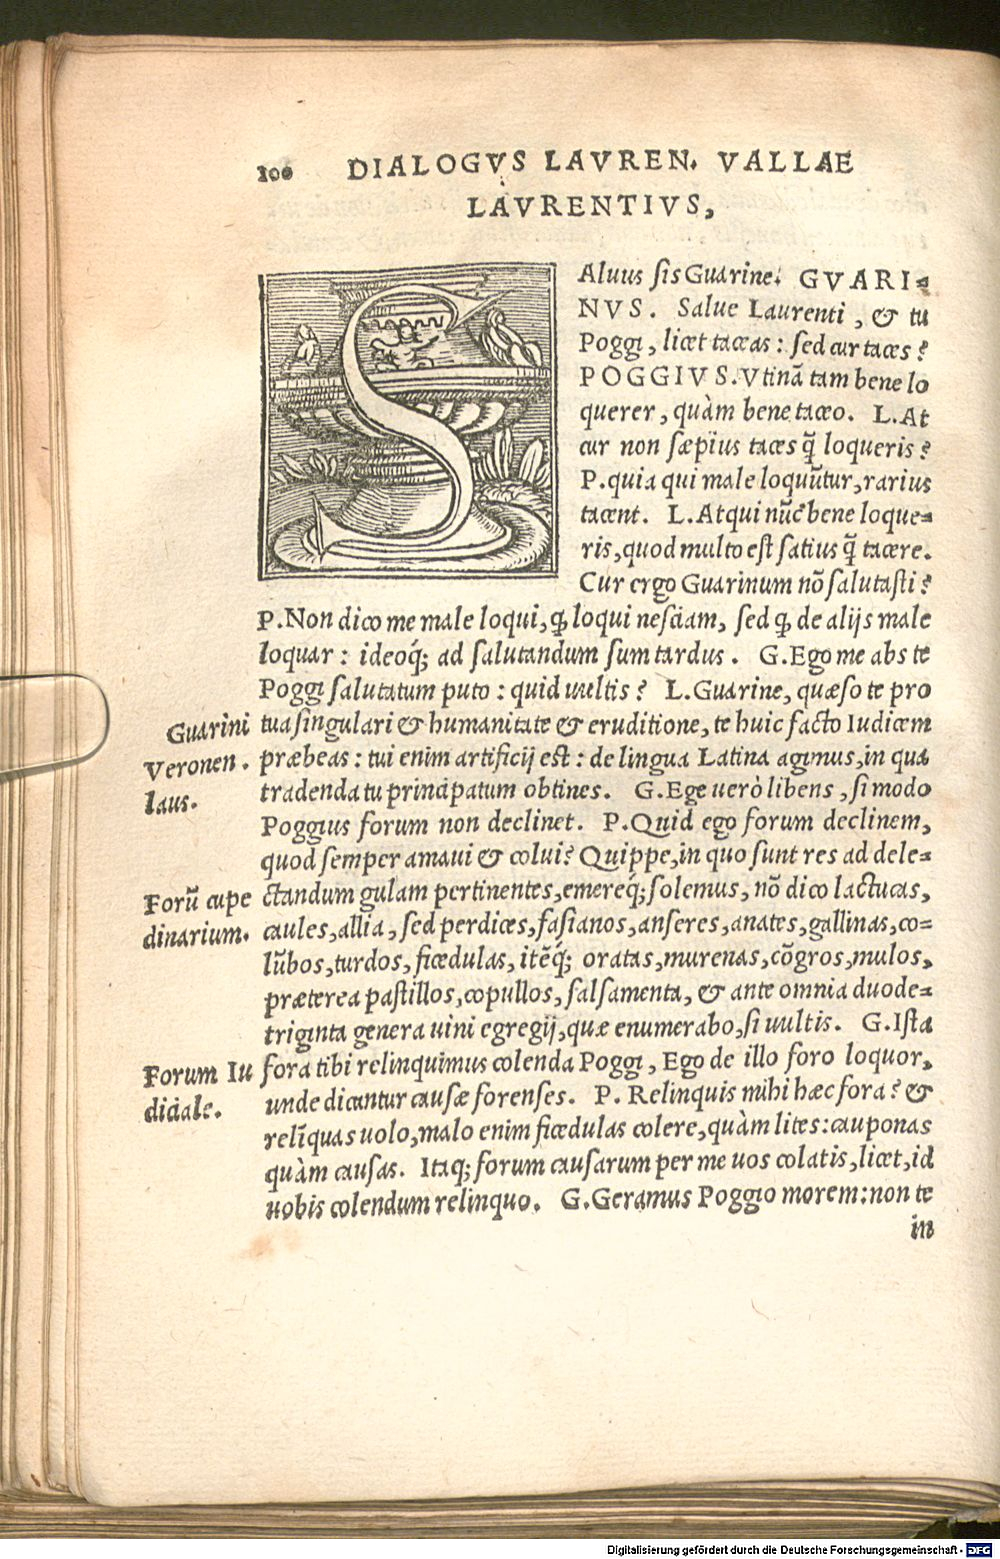 100 DIALOGVS LAVREN. VALLAE
LAVRENTIVS,
SAluus sis Guarine. GVARI=
NVS. Salue Laurenti, & tu
Poggi, licet taceas: sed cur taces?
POGGIVS. Vtinã tam bene lo
querer, quàm bene taceo. L. At
cur non sæpius taces q̃ loqueris?
P. quia qui male loquũtur, rarius
tacent. L. Atqui nũc bene loque=
ris, quod multo est satius q̃ tacere.
Cur ergo Guarinum nõ salutasti?
P. Non dico me male loqui, ꝙ loqui nesciam, sed ꝙ de alijs male
loquar: ideoq́; ad salutandum sum tardus. G. Ego me abs te
Poggi salutatum puto: quid uultis? L. Guarine, quæso te pro
Guarini
tua singulari & humanitate & eruditione, te huic facto Iudicem
Veronen.
præbeas: tui enim artificij est: de lingua Latina agimus, in qua
laus.
tradenda tu principatum obtines. G. Ege uerò libens, si modo
Poggius forum non declinet. P. Quid ego forum declinem,
quod semper amaui & colui? Quippe, in quo sunt res ad dele=
Forũ cupe
ctandum gulam pertinentes, emereq́; solemus, nõ dico lactucas,
dinarium.
caules, allia, sed perdices, fasianos, anseres, anates, gallinas, co=
lũbos, turdos, ficedulas, itẽq́; oratas, murenas, cõgros, mulos,
præterea pastillos, copullos, salsamenta, & ante omnia duode=
triginta genera uini egregij, quæ enumerabo, si uultis. G. Ista
Forum Iu
fora tibi relinquimus colenda Poggi, Ego de illo foro loquor,
diciale.
unde dicuntur causæ forenses. P. Relinquis mihi hæc fora? &
relĩquas uolo, malo enim ficedulas colere, quàm lites: cauponas
quàm causas. Itaq; forum causarum per me uos colatis, licet, id
uobis colendum relinquo. G. Geramus Poggio morem: non te
in
Digitalisierung gefördert durch die Deutsche Forschungsgemeinschaft - DFG